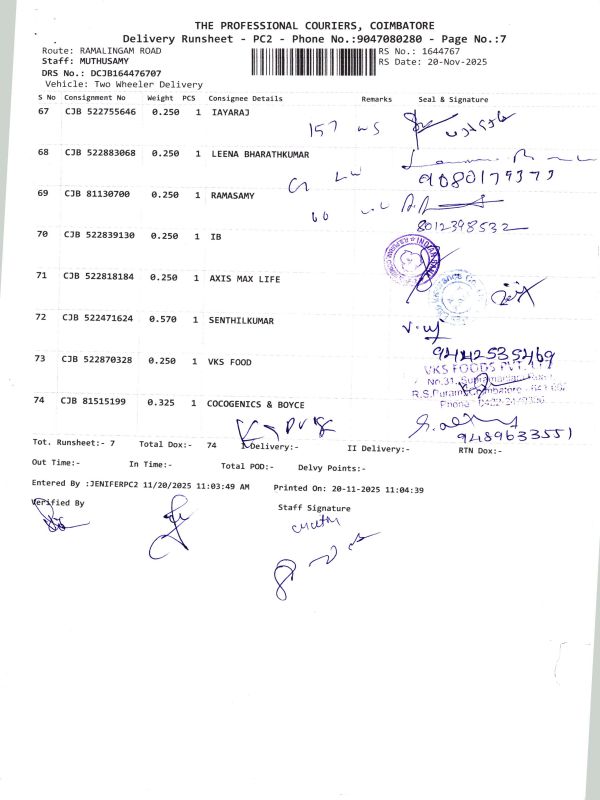 THE PROFESSIONAL COURIERS, COIMBATORE
Delivery Runsheet - PC2 - Phone No.:9047080280 - Page No.:7
Route: RAMALINGAM ROAD RS No.: 1644767
Staff: MUTHUSAMY RS Date: 20-Nov-2025
DRS No.: DCJB164476707
Vehicle: Two Wheeler Delivery
S No Consignment No Weight PCS Consignee Details Remarks Seal & Signature
67 CJB 522755646 0.250 1 IAYARAJ
157
68 CJB 522883068 0.250 1 LEENA BHARATHKUMAR
9080179373
69 CJB 81130700 0.250 1 RAMASAMY
60
8012398532
70 CJB 522839130 0.250 1 IB
71 CJB 522818184 0.250 1 AXIS MAX LIFE
72 CJB 522471624 0.570 1 SENTHILKUMAR
9442535469
73 CJB 522870328 0.250 1 VKS FOOD
VKS FOODS PVT. LTD
No.31,
R.S.Puram, Coimbatore - 641 002
Phone
74 CJB 81515199 0.325 1 COCOGENICS & BOYCE
9489633551
Tot. Runsheet:- 7 Total Dox:- 74 I Delivery:- II Delivery:- RTN Dox:-
Out Time:- In Time:- Total POD:- Delvy Points:-
Entered By :JENIFERPC2 11/20/2025 11:03:49 AM Printed On: 20-11-2025 11:04:39
Verified By Staff Signature